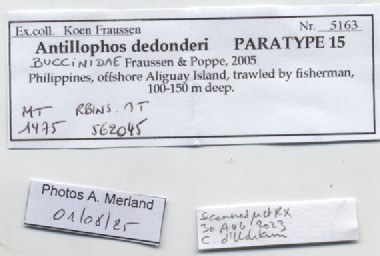 Ex.coll. Koen Fraussen Nr. 5163
Antillophos dedonderi PARATYPE 15
BUCCINIDAE Fraussen & Poppe, 2005
Philippines, offshore Aliguay Island, trawled by fisherman,
100-150 m deep.
MT RBINS. MT
1475 562045
Photos A. Merland
01/08/25
Scanned µctRX
30 AUG 2023
C. d'Udekem